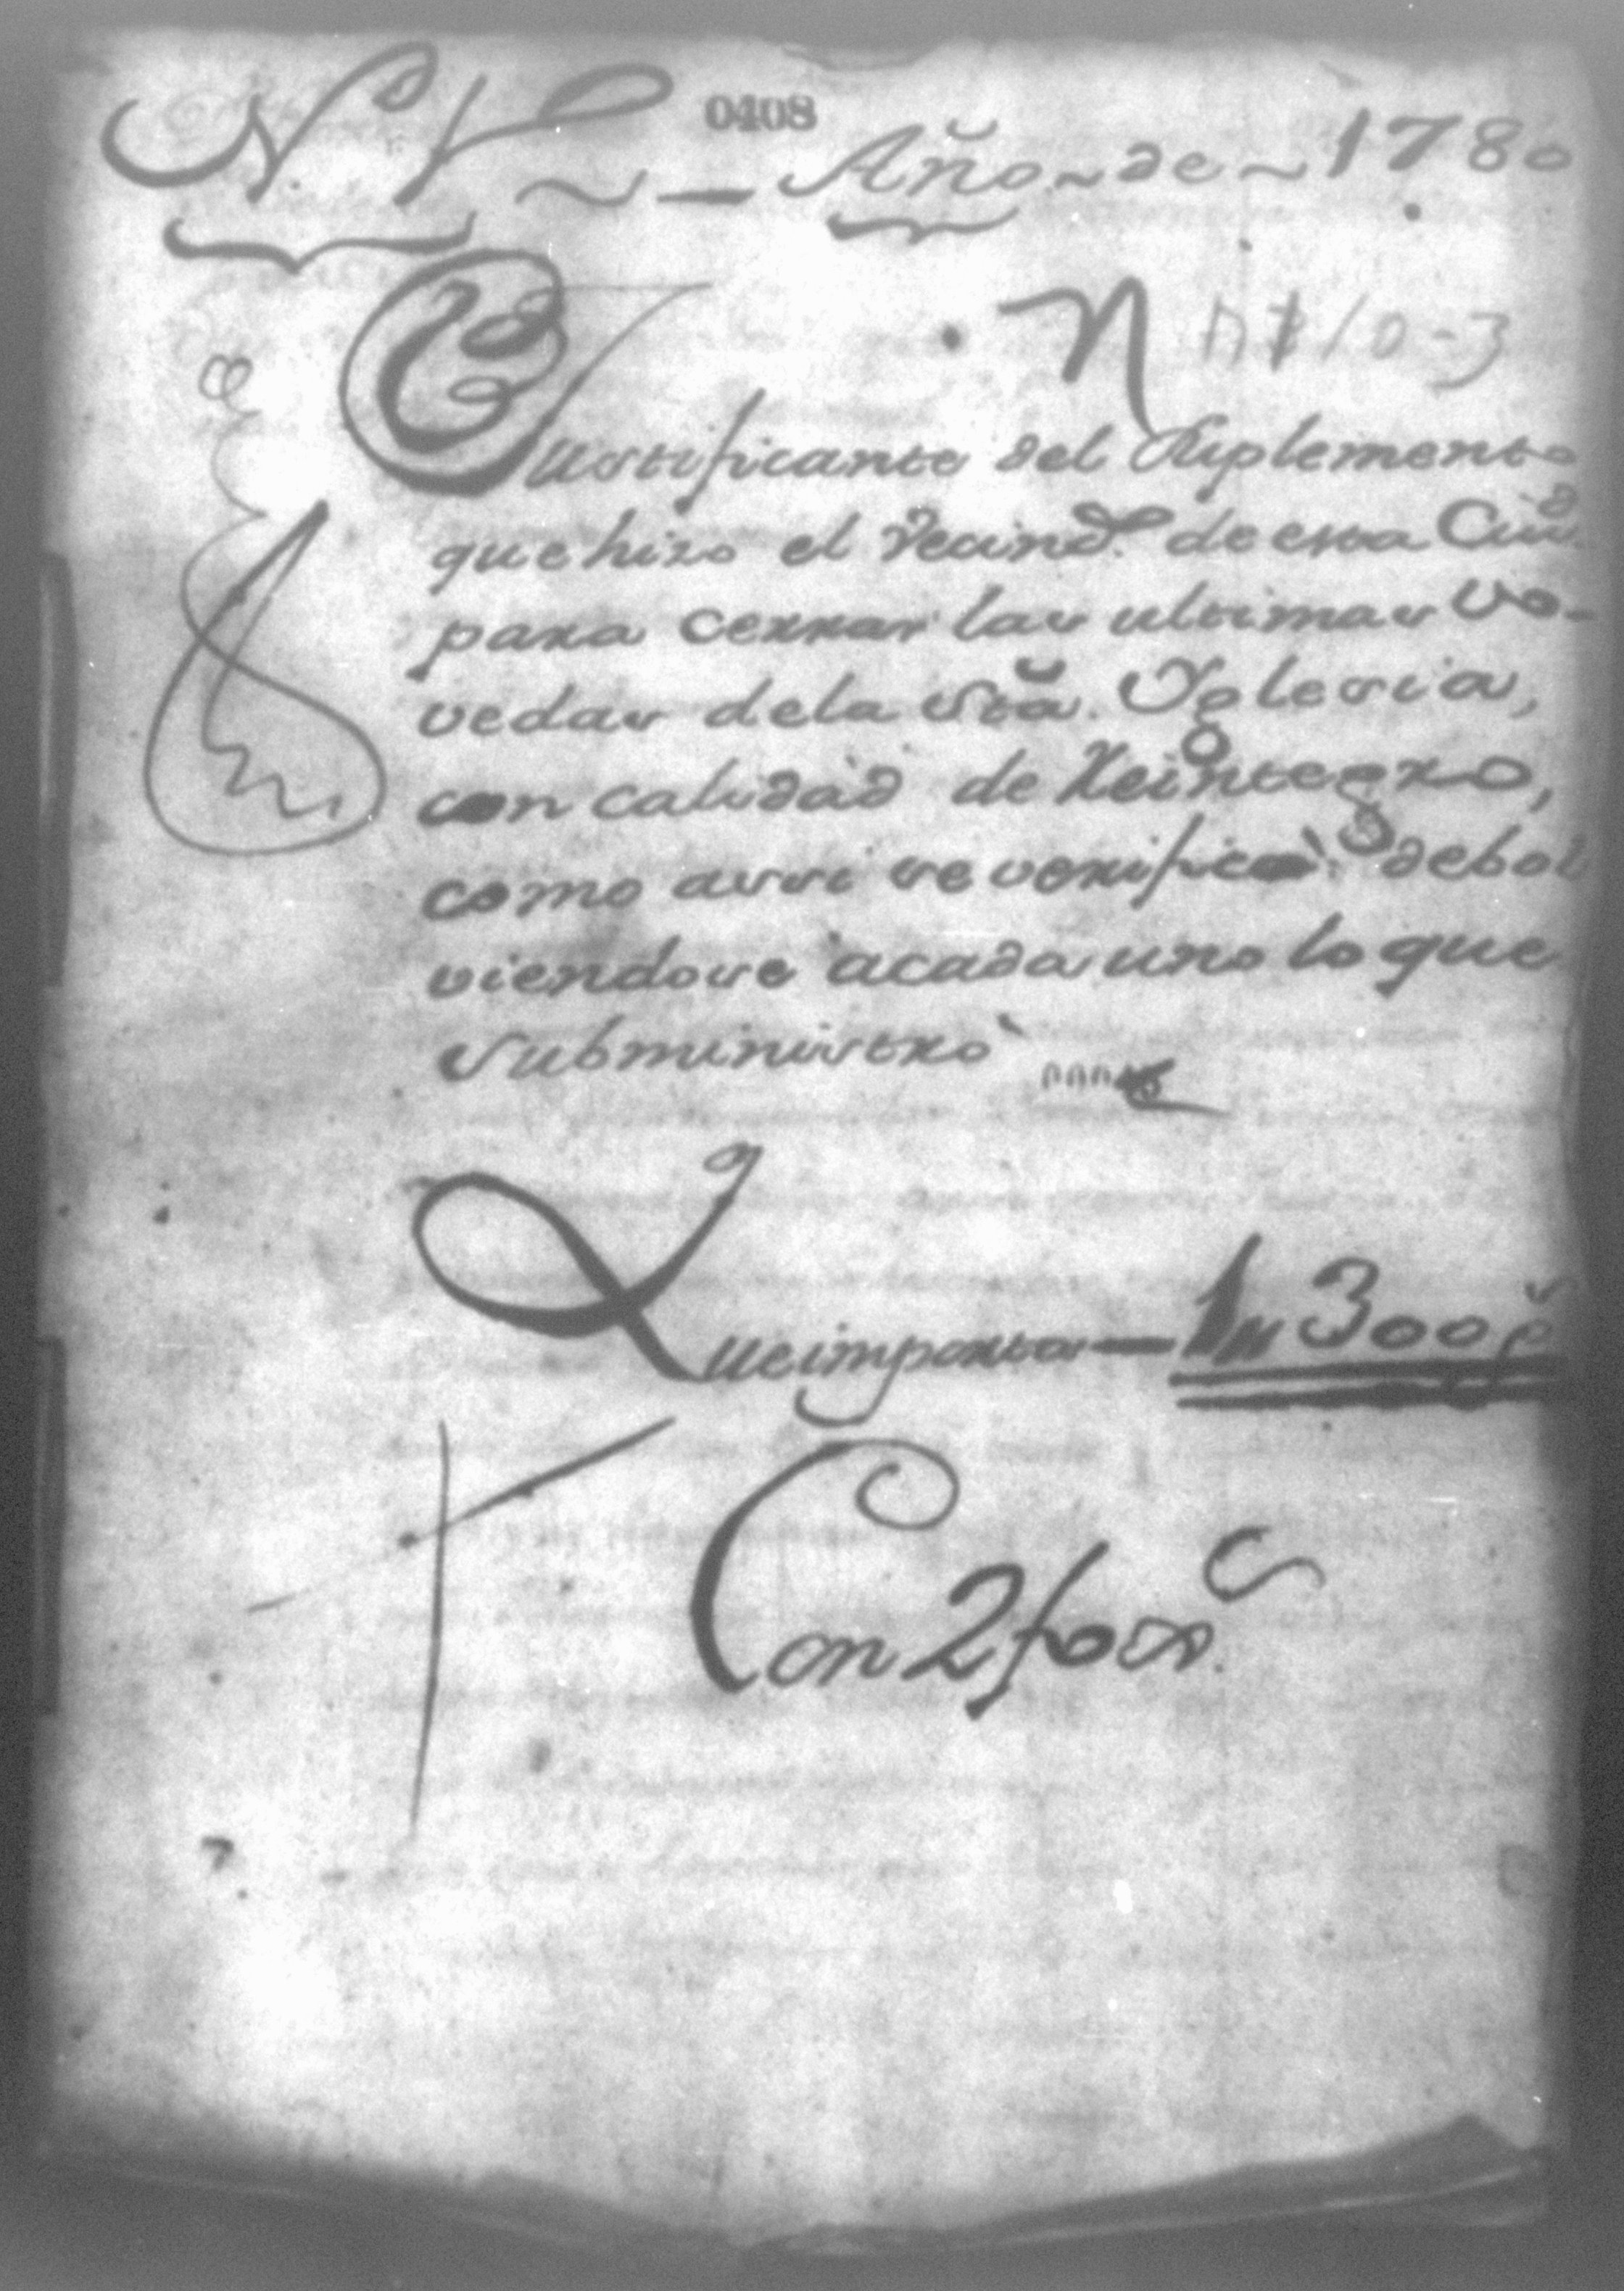 0408
N. 1 ~ — Año ~ de ~ 1780
10-3
Justificante del Suplemento
que hizo el Vecind.º de esta Ciu.d
para cerrar las ultimas Vo-
vedas de la Stã. Yglesia,
con calidad de Reintegro,
como assi se verificò. debol
viendose acada uno lo que
Subministrò
Que importa — 1 U 300 p.s
Con 2 foxs.